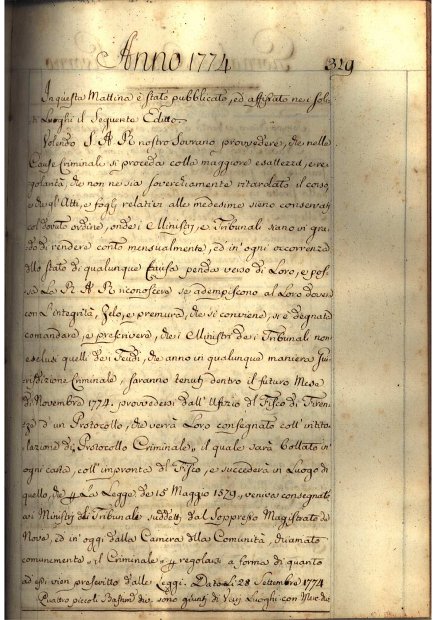 Anno 1774
329
In questa Mattina è stato pubblicato, ed affissato nei soli-
ti Luoghi il Seguente Editto.
Volendo S. A. R. nostro Sovrano provvedere, che nelle
Cause Criminale si proceda colla maggiore esattezza, e re-
golarità, che non ne sia soverchiamente ritardato il corso
e che gli Atti, e fogli relativi alle medesime sieno conservati
col dovuto ordine, onde i Ministri, e Tribunali siano in gra-
do di rendere conto mensualmente, ed in' ogni occorrenza
dello stato di qualunque Causa penda verso di Loro, e pos-
sa La R. A. R. riconoscere se adempiscono al Loro dovere
con L'integrità, Zelo, e premura, che si conviene, si è degnata
comandare, e prescrivere, che i Ministri dei Tribunali non
esclusi quelli dei Feudi, che anno in qualunque maniera Giu-
risdizione Criminale, saranno tenuti dentro il futuro Mese
di Novembre 1774. provvedersi dall' Ufizio del Fisco di Firen-
ze d' un Protocollo, che verrà Loro consegnato coll' intito-
lazione di Protocollo Criminale, il quale sarà bollato in'
ogni carta, coll' impronta del Fisco, e succederà in Luogo di
quello, che La Legge de 15 Maggio 1579, veniva consegnato
ai Ministri dei Tribunale suddetti dal Soppresso Magistrato de
Nove, ed in' oggi dalla Camera della Comunità, chiamato
comunemente il Criminale regolarsi a forma di quanto
ad essi vien prescritto dalle Leggi. Dato Li 28 Settembre 1774
Quattro piccoli Bastim. che sono giunti di Varj Luoghi con